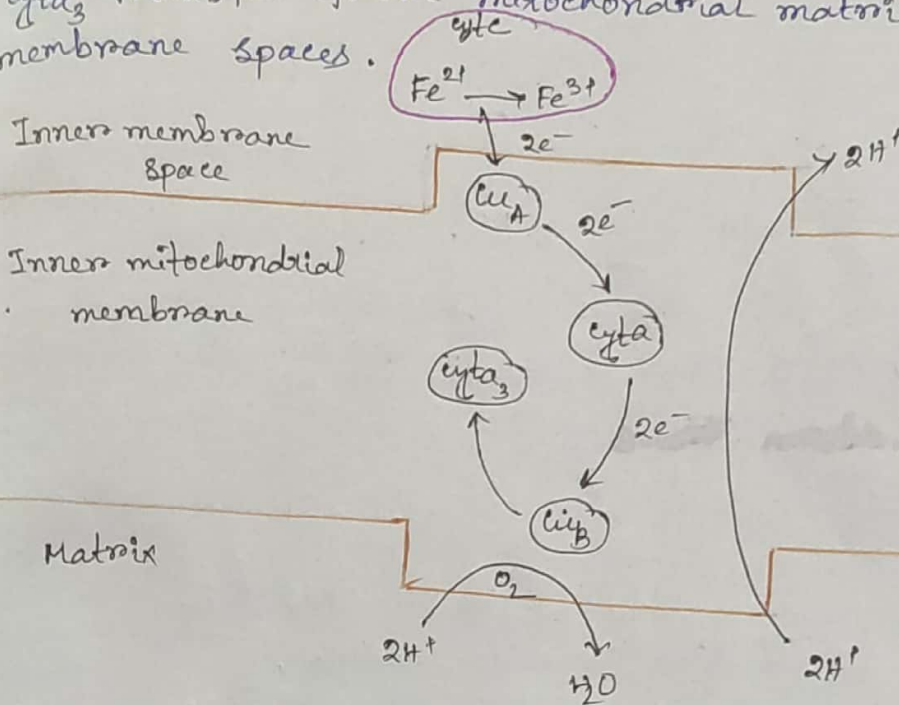 mitochondrial matri
membrane spaces.
cytc
Fe²⁺ → Fe³⁺
2e⁻
Inner membrane
space
2H⁺
CuA
2e⁻
Inner mitochondrial
membrane
cyta
cyta₃
2e⁻
CuB
Matrix
O₂
2H⁺
H₂O
2H⁺